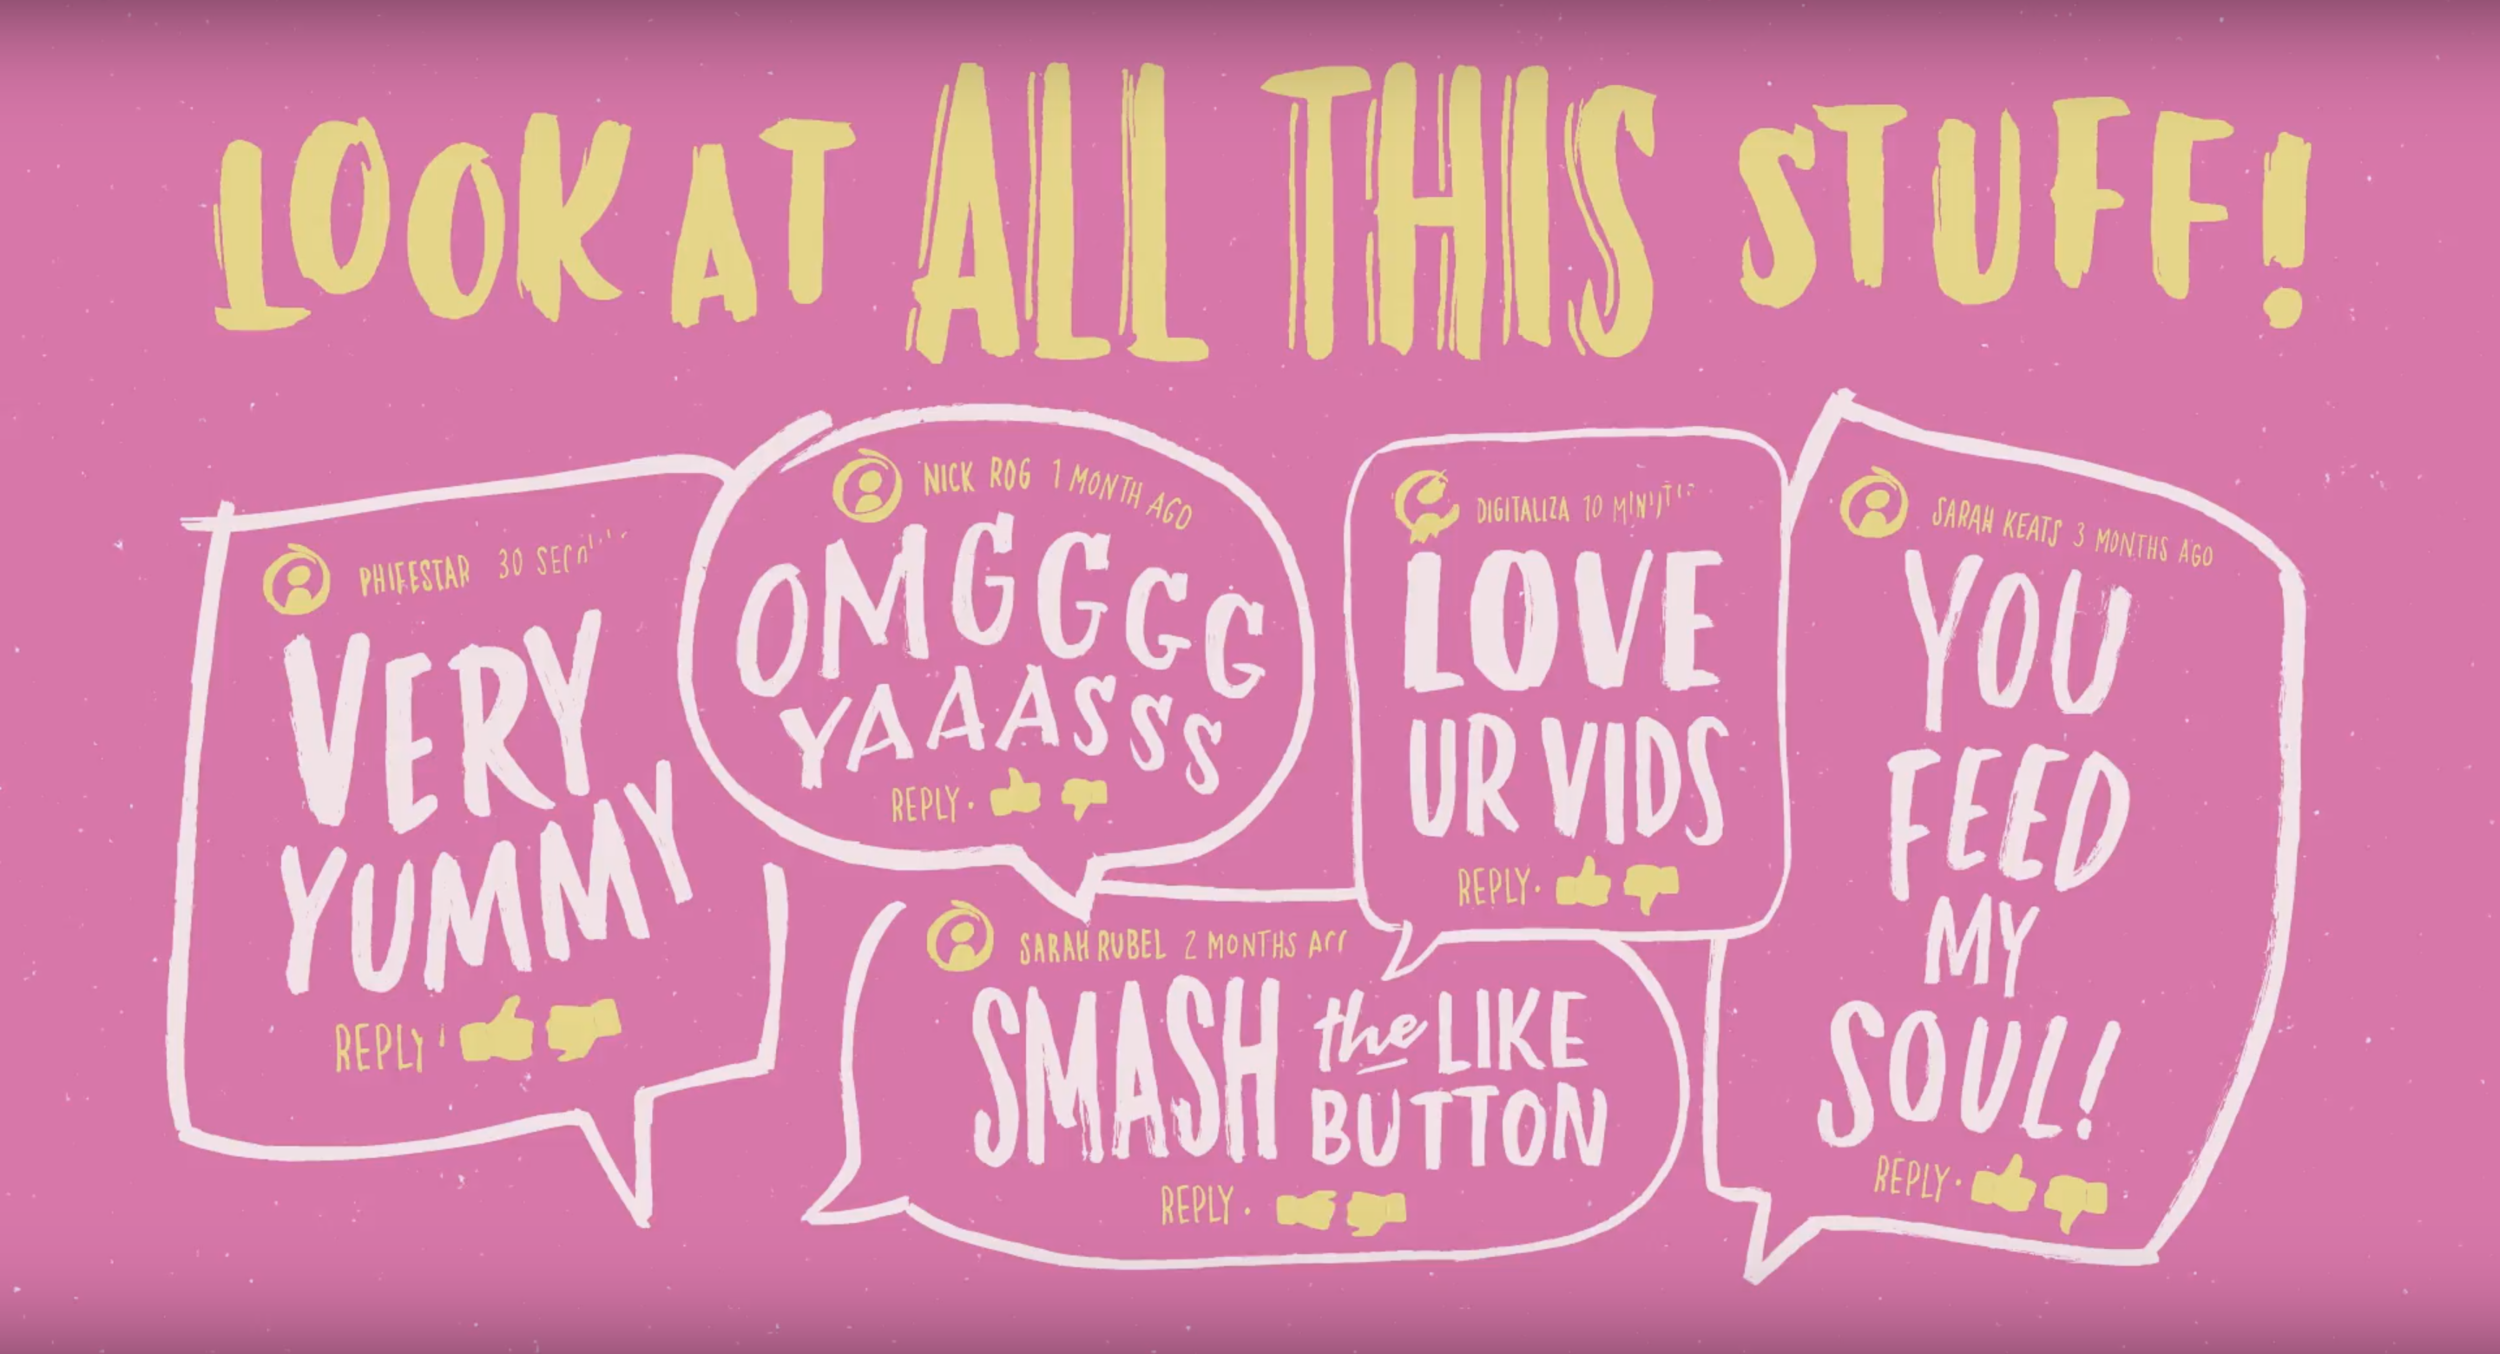 LOOK AT ALL THIS STUFF!
PHIFESTAR 30
VERY
YUMMY
REPLY
NICK ROG 1 MONTH AGO
OMGGGG
YAAASSS
REPLY •
DIGITALIZA 10
LOVE
UR VIDS
REPLY •
SARAH RUBEL 2 MONTHS
SMASH the LIKE
BUTTON
REPLY •
SARAH KEATS 3 MONTHS AGO
YOU
FEED
MY
SOUL!
REPLY •